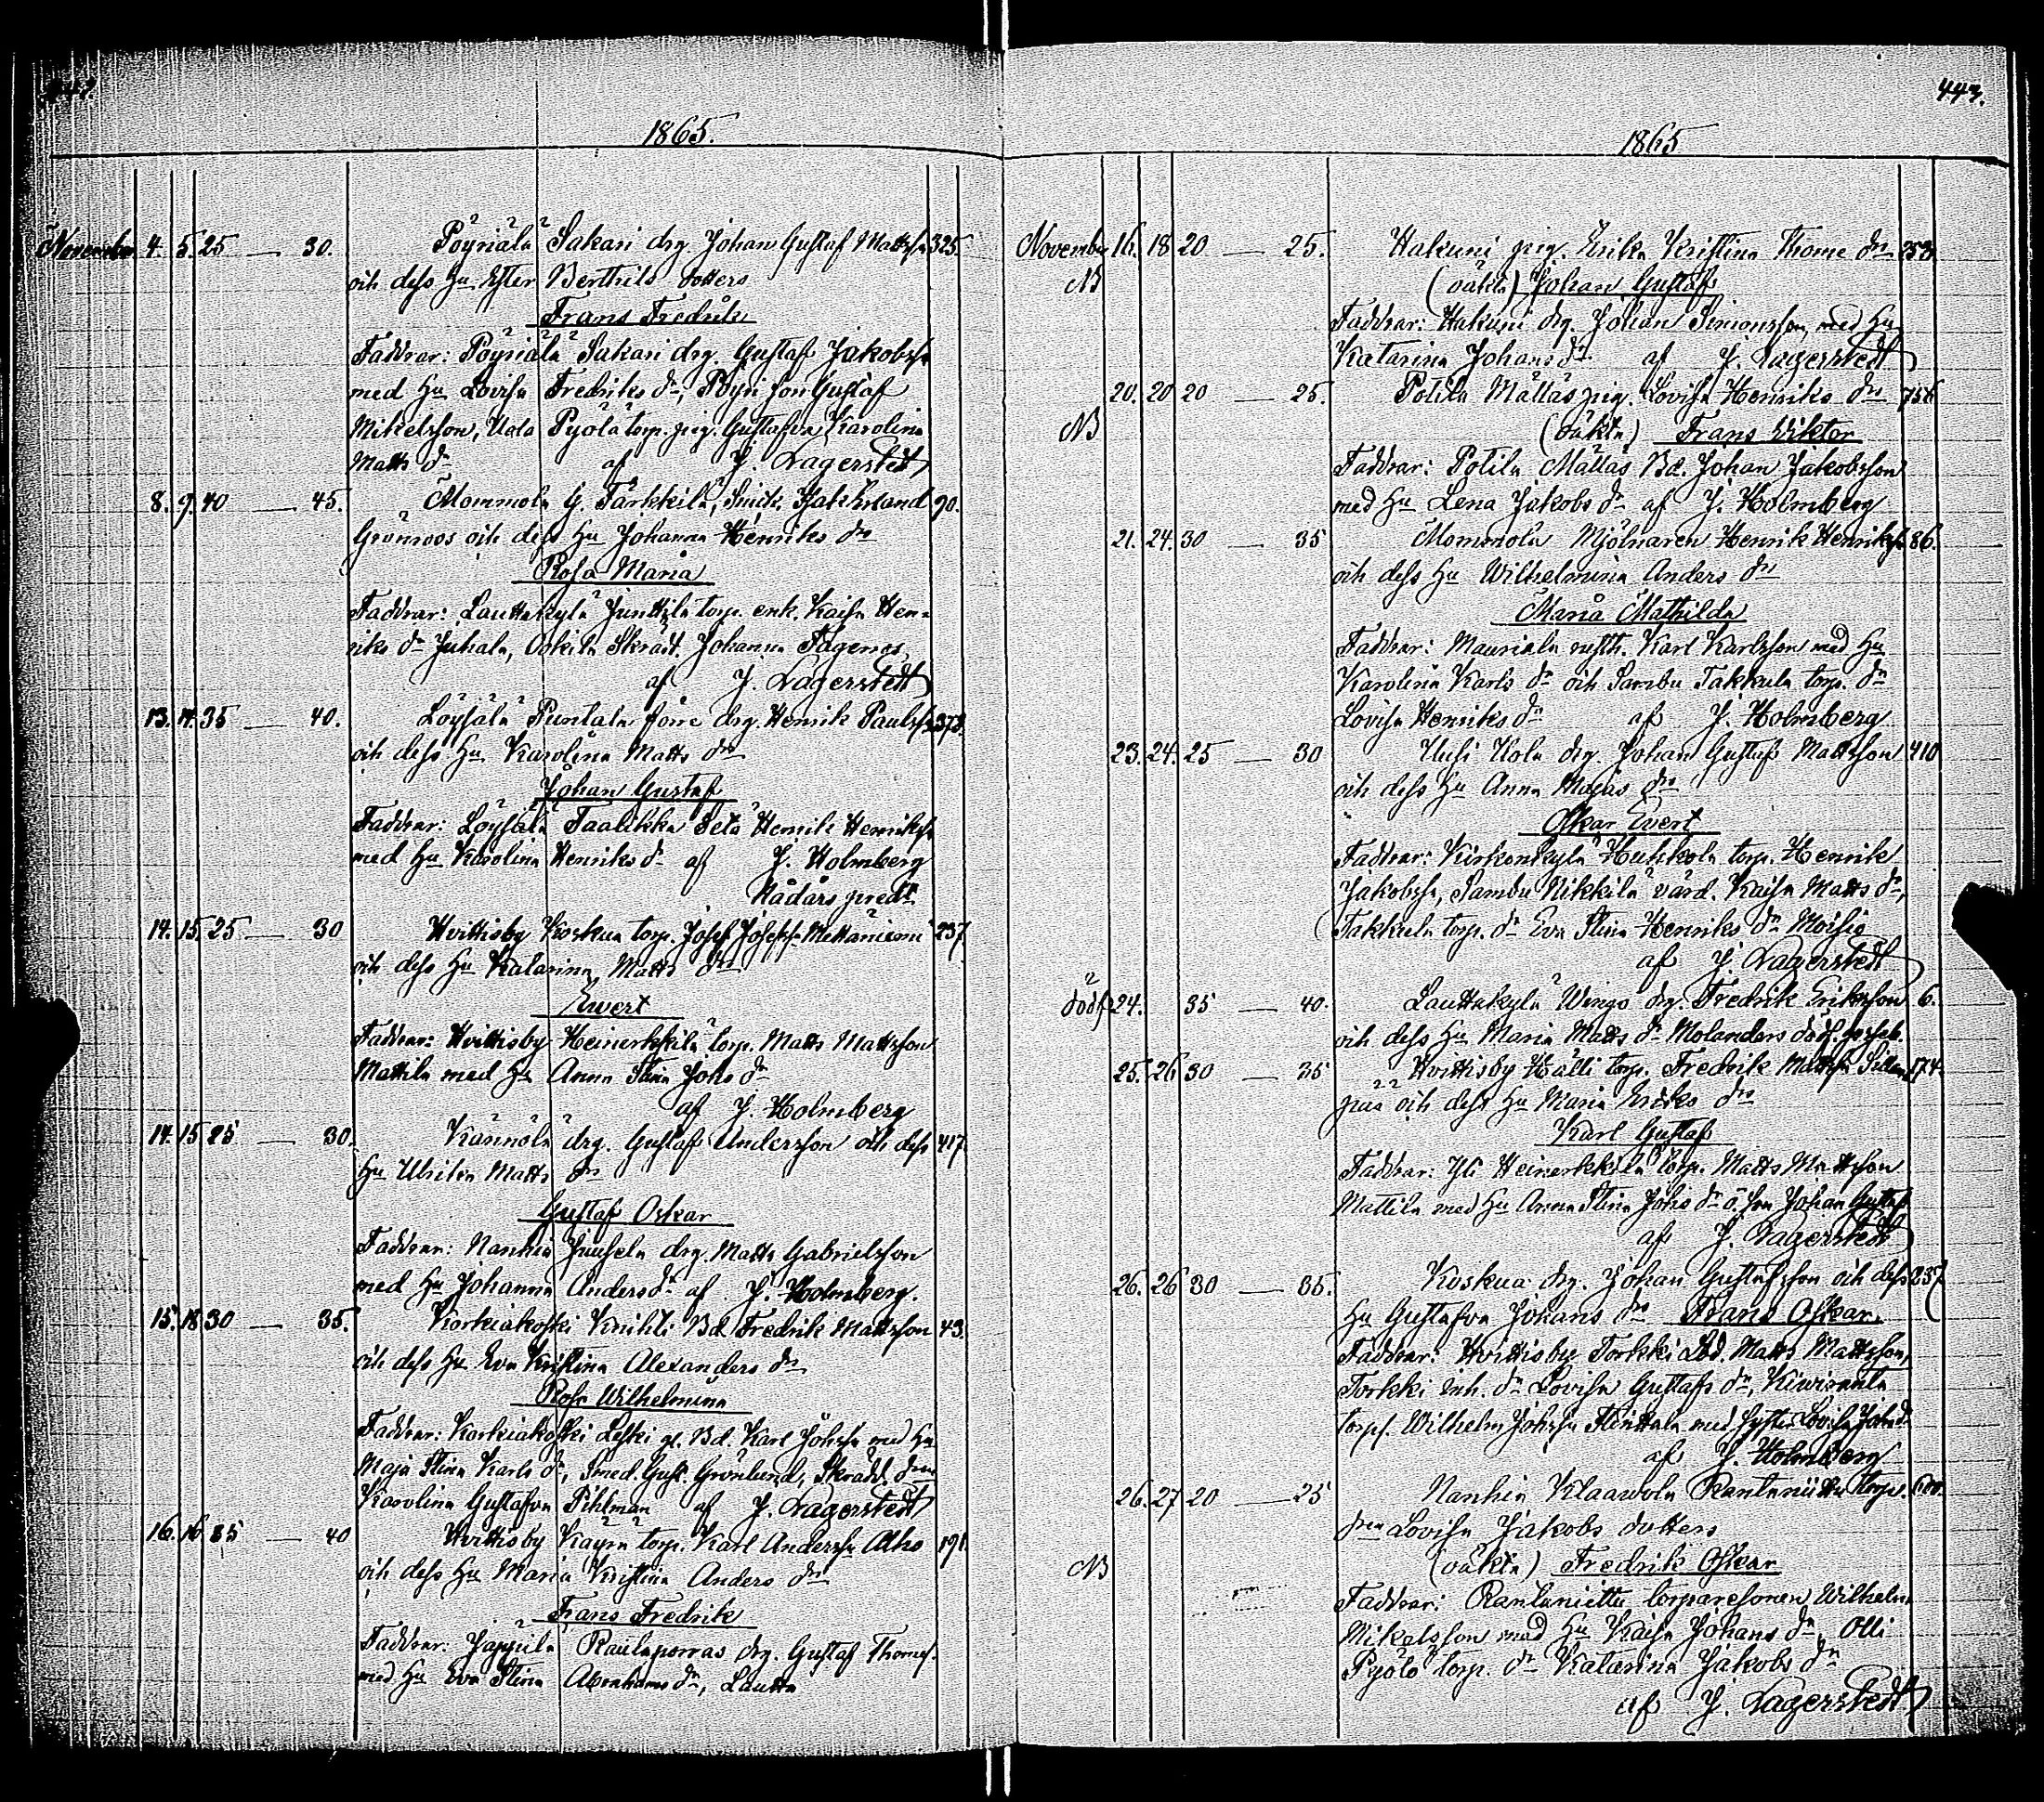 1865.
November 4. 5. 25 — 30. Pöyriälä Sakari drg. Johan Gustaf Mattsson 325.
och dess Hu Ester Berthils dotters
Frans Fredrik
Faddrar: Pöyriälä Sakari drg. Gustaf Jakobss.
med Hu Lovisa Fredriks dr, Pöyri son Gustaf
Mikelsson, Uola Pyölä torp. pig. Gustafva Karolina
Matts dr af J. Lagerstedt
8. 9. 40 — 45. Mommola G. Tärkkilä, Smick. 90.
Grönroos och dess Hu Johanna Henriks drs
Rosa Maria
Faddrar: Lauttakylä Junttila torp. enk. Kaisa Hen-
riks dr Juhala, Skrädd. Johanna Fagerros,
af J. Lagerstedt
13. 14. 35 — 40. Löysälä Puntala förre drg. Henrik Paulss. 373.
och dess Hu Karolina Matts drs
Johan Gustaf
Faddrar: Löysälä Taalikka Henrik Henrikss.
med Hu Karolina Henriks dr af J. Holmberg
Nådårs pred.
14. 15. 25 — 30 Hvittisby Koskua torp. Josef Josefss. Mettäniemi 237
och dess Hu Katarina Matts drs
Ewert
Faddrar: Hvittisby Heinerkkilä torp. Matts Mattsson
Mattila med Hu Anna Stina Johs dr
af J. Holmberg
14. 15. 25 — 30. Kännölä drg. Gustaf Andersson och dess 417.
Hu Ulrika Matts drs
Gustaf Oskar
Faddrar: Nanhia Juusela drg. Matts Gabrielsson
med Hu Johanna Anders dr af J. Holmberg.
15. 18. 30 — 35. Korkiakoski Knihti Bd. Fredrik Mattsson 43.
och dess Hu Eva Kristina Alexanders drs
Rosa Wilhelmina
Faddrar: Korkiakoski Leski gl. Bd. Karl Johss. med Hu
Maja Stina Karls dr, Smed. Gust. Grönlund, Skrädd.
Karolina Gustafva Pihlman af J. Lagerstedt
16. 16. 35 — 40 Hvittisby Käyrä torp. Karl Anderss. Alho 191.
och dess Hu Maria Kristina Anders drs
Frans Fredrik
Faddrar: Jappila Raulaporras drg. Gustaf Thomss.
med Hu Eva Stina Abrahams dr, Lautta
443.
1865
November 16. 18. 20 — 25. Hakuni pig. Erika Kristina Thome drs 253.
NB (oäkta) Johan Gustaf
Faddrar: Hakuni drg. Johan Simonsson med Hu
Katarina Johans dr af J. Lagerstedt
20. 20 20 — 25. Potila Mällas pig. Lovisa Henriks drs
NB (oäkta) Frans Viktor
Faddrar: Potila Mällas Bd. Johan Jakobsson
med Hu Lena Jakobs dr af J. Holmberg
21. 24. 30 — 35 Mommola Mjölnaren Henrik Henrikss. 86.
och dess Hu Wilhelmina Anders drs
Maria Mathilda
Faddrar: Mauriala rusth. Karl Karlsson med Hu
Karolina Karls dr och Sambu Takkula torp. dr
Lovisa Henriks dr af J. Holmberg
23. 24. 25 — 30 Uusi Uola drg. Johan Gustaf Mattsson 410
och dess Hu Anna Majas drs
Oskar Evert
Faddrar: Kirkonkylä Huhkola torp. Henrik
Jakobss., Sambu Nikkilä värd. Kaisa Matts dr,
Takkula torp. dr Eva Stina Henriks dr Moisio
af J. Lagerstedt
dödf. 24. 35 — 40. Lauttakylä Wingo drg. Fredrik Eriksson 6.
och dess Hu Maria Matts dr Molanders
25. 26. 30 — 35 Hvittisby Hälli torp. Fredrik Mattss. Sillan 174.
pää och dess Hu Maria Eriks drs
Karl Gustaf
Faddrar: Yli Heinerkkilä torp. Matts Mattsson
Mattila med Hu Anna Stina Johs dr o. son Johan Gustaf
af J. Lagerstedt
26. 26 30 — 35. Koskua drg. Johan Gustafsson och dess 237
Hu Gustafva Johans drs Frans Oskar.
Faddrar: Hvittisby Torkki Lbd. Matts Mattsson,
Torkki inh. dr Lovisa Gustafs dr, Kiviranta
torps. Wilhelm Johss. med syster Lovisa Johs dr
af J. Holmberg
26. 27 20 — 25 Nanhia Klaavola Rantaniittu torps. 600.
drn Lovisa Jakobs dotters
NB (oäkta) Fredrik Oskar
Faddrar: Rantaniittu torparesonen Wilhelm
Mikelsson med Hu Kaisa Johans dr, Olli
Pyölö torp. dr Katarina Jakobs dr
af J. Lagerstedt